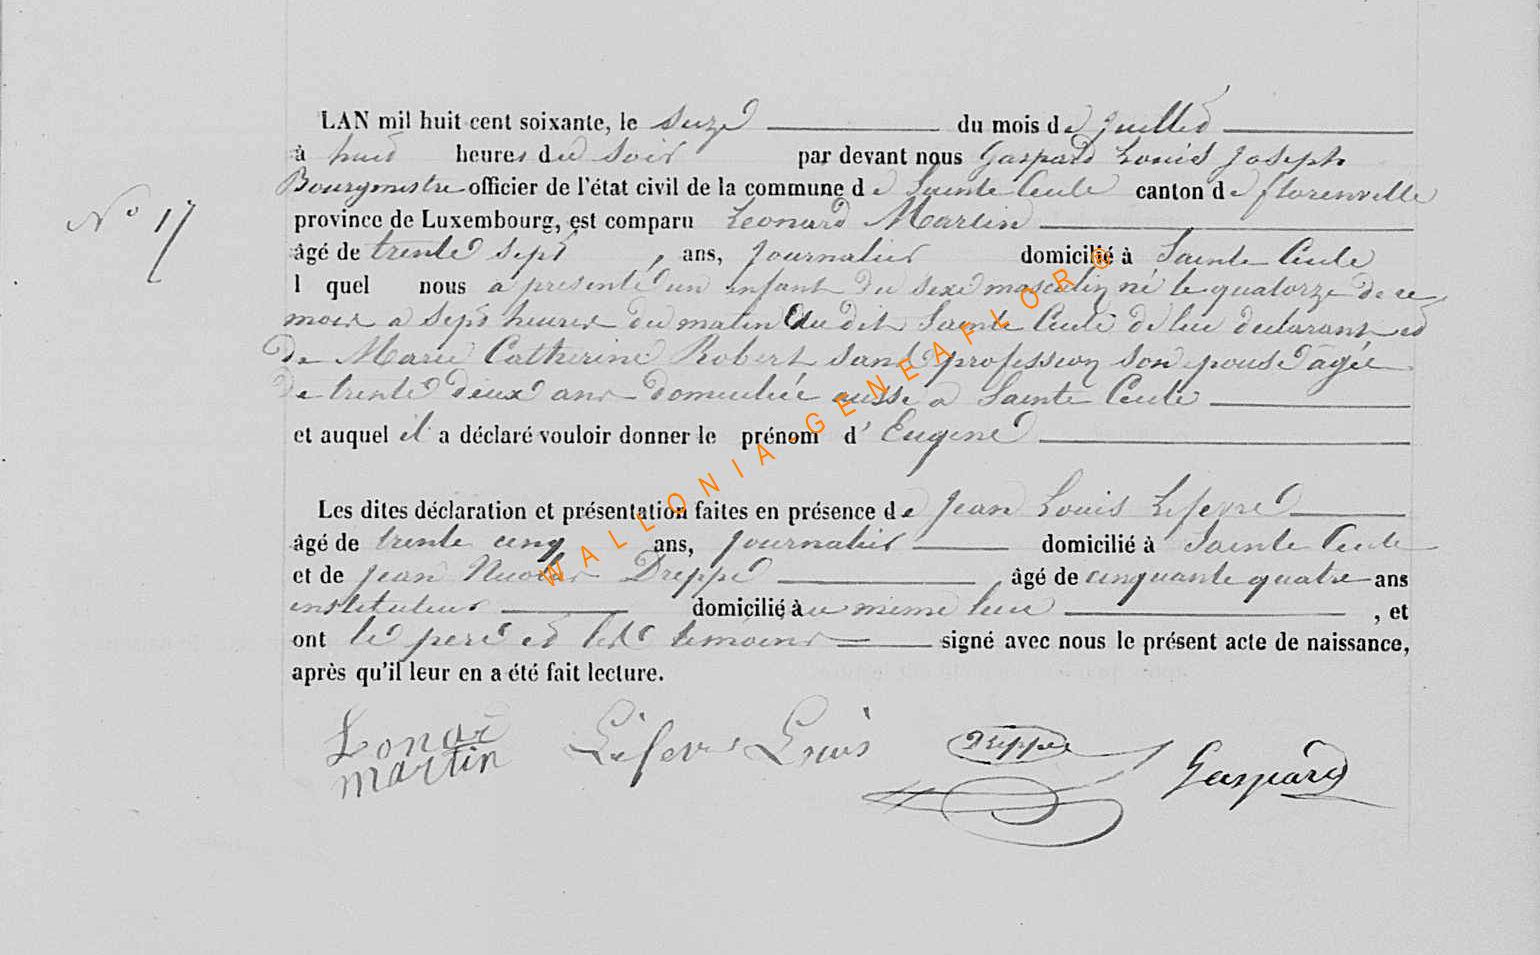 LAN mil huit cent soixante, le seize du mois de juillet
à huit heures du soir par devant nous Gaspard Louis Joseph
Bourgmestre officier de l'état civil de la commune de Sainte Cecile canton de florenville
N° 17
province de Luxembourg, est comparu Leonard Martin
âgé de trente sept, ans, journalier domicilié à Sainte Cecile
l quel nous a presenté un enfant du sexe masculin né le quatorze de ce
mois a sept heures du matin au dit Sainte Cecile de lui declarant et
de Marie Catherine Robert sans profession son epouse agée
de trente deux ans domiciliée aussi a Sainte Cecile
et auquel il a déclaré vouloir donner le prénom d' Eugene
Les dites déclaration et présentation faites en présence de Jean Louis Lefevre
âgé de trente cinq ans, journalier domicilié à Sainte Cecile
et de Jean Nicolas Dreppe, âgé de cinquante quatre ans
instituteur domicilié à u meme lieu, et
ont le pere et les temoins signé avec nous le présent acte de naissance,
après qu'il leur en a été fait lecture.
Lonar Lefevre Louis Dreppe Gaspard
martin
WALLONIA-GENEAFLOR®